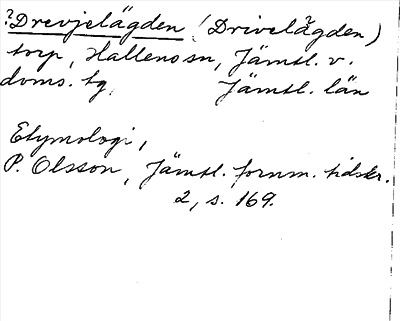 ?Drevjelägden (Drivelägden)
torp, Hallen sn, Jämtl. v.
doms. tg. Jämtl. län
Etymologi,
P. Olsson, Jämtl. fornm. tidskr.
2, s. 169.